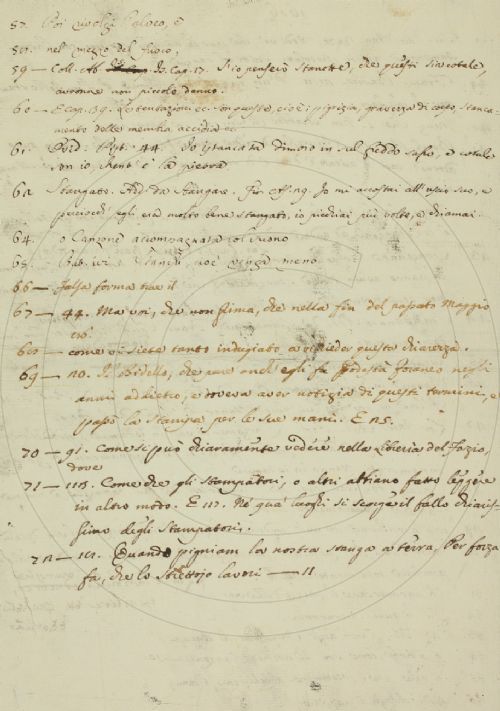 57. Poi rivolgi l'alveo, è
58. nel mezzo del fuoco,
59 — Coll. Ab. Is. Cap. 17. S'io penserò stanotte, che questi sia cotale,
avronne non piccolo danno.
60 — E cap. 39. Le tentazioni ec. son queste, cioè pigrizia, gravezza di corpo, stanca-
mento delle membra accidia ec.
61. 44. Io stancata dimoro in sul freddo sasso, e cotale
son io, chente è la pietra
62 Stangato. Add. da Stangare. Io mi accostai all'uscio suo, e
perciocch'egli era molto bene stangato, io picchiai più volte, e chiamai.
64. o Canzone accompagnata col suono
65. cioè senza meno
66 — falsa forma trae il
67 — 44. Ma voi, che non prima, che nella fin del passato Maggio
68 — come vi siete tanto indugiato a richieder questa chiarezza.
69 — 20. Il Bidello, che anch'egli fu Podestà foraneo negli
anni addietro, e doveva aver notizia di questi termini, e
passò la stampa per le sue mani. E 25.
70 — 91. Come si può chiaramente vedere nella Libreria del Fazio,
dove
71 — 115. Come che gli stampatori, o altri abbiano fatto leggere
in altro modo. E 117. Nè qua' luoghi si scorge il fallo chiaris-
simo degli Stampatori.
72 — 121. Quando pigniam la nostra stanga a terra, Per forza
fa, che lo strettojo lavori — 11